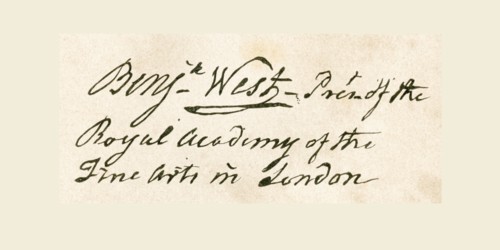 Benjn West - Prest of the
Royal Academy of the
Fine Arts in London